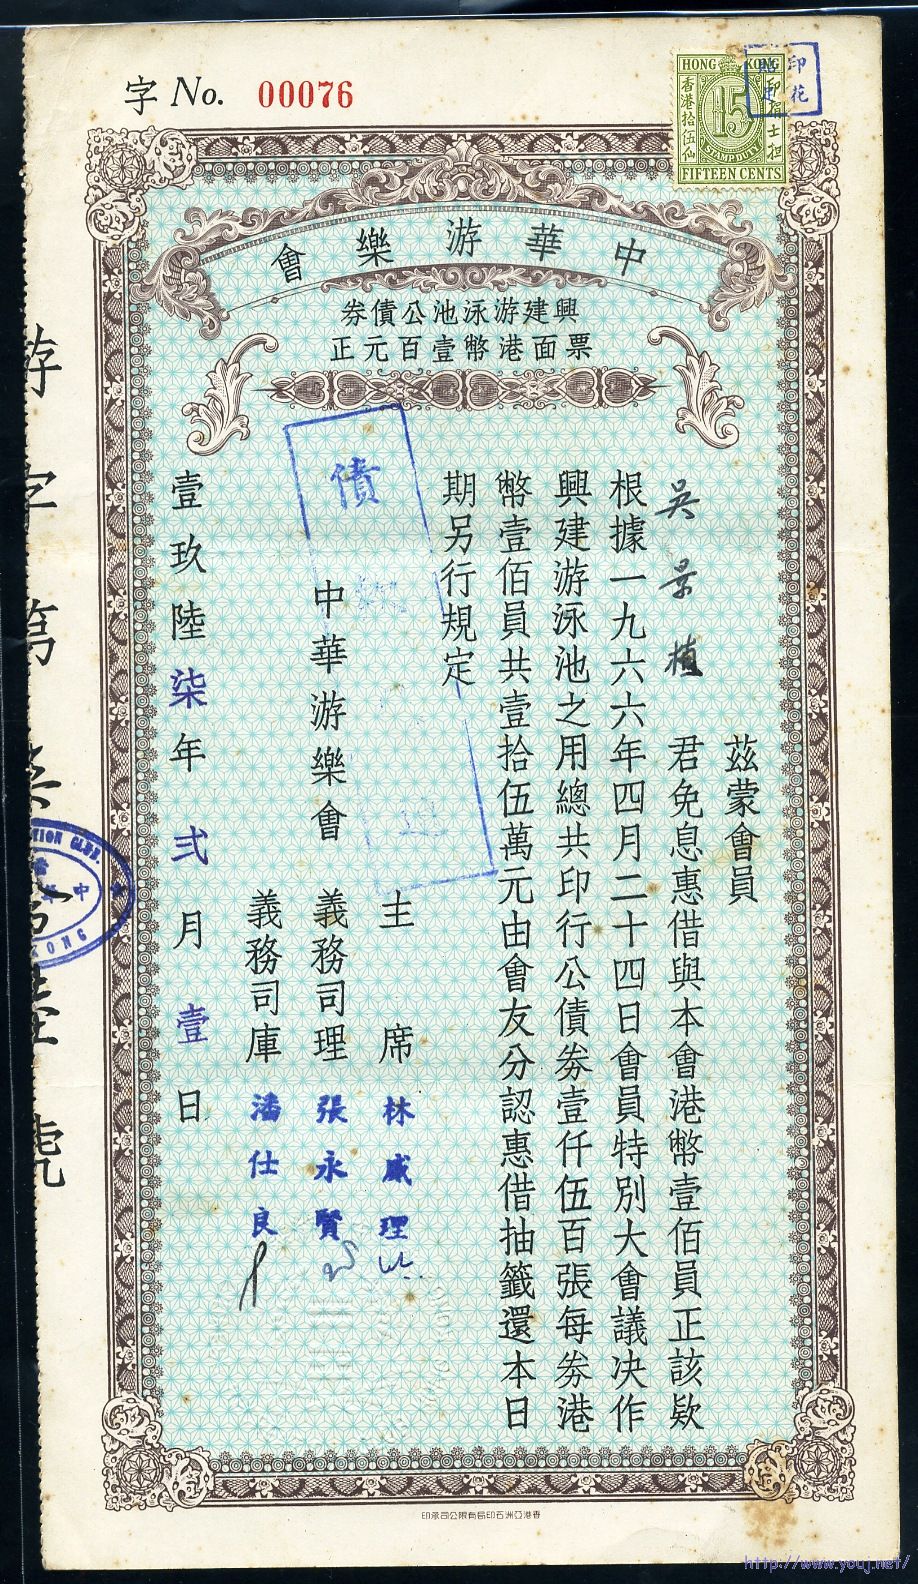 字 No. 00076
HONG KONG
香港拾伍仙
15
STAMP DUTY
FIFTEEN CENTS
印花
中華游樂會
興建游泳池公債券
票面港幣壹百元正
茲蒙會員
吳景楨 君免息惠借與本會港幣壹佰員正該款
根據一九六六年四月二十四日會員特別大會議決作
興建游泳池之用總共印行公債券壹仟伍百張每券港
幣壹佰員共壹拾伍萬元由會友分認惠借抽籤還本日
期另行規定
債
主席 林威理
中華游樂會 義務司理 張永賢
義務司庫 潘仕良
壹玖陸柒年弍月壹日
游字第
號
中
香港亞洲石印局有限公司承印
http://www.youj.net/